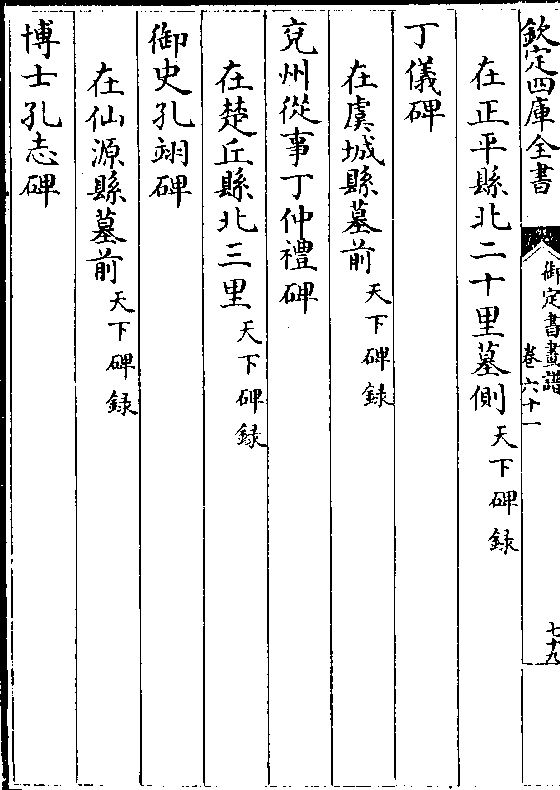 欽定四庫全書
御定書畫譜
卷六十一
七十九
在正平縣北二十里墓側天下碑録
丁儀碑
在虞城縣墓前天下碑録
兖州從事丁仲禮碑
在楚丘縣北三里天下碑録
御史孔翊碑
在仙源縣墓前天下碑録
博士孔志碑